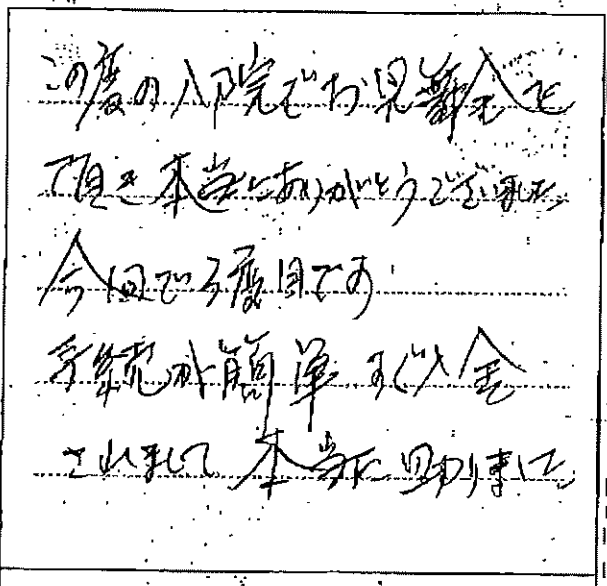 この度の入院でお見舞金を
頂き本当にありがとうございました
今回で3度目です
手続が簡単すぐ入金
されまして本当に助りました